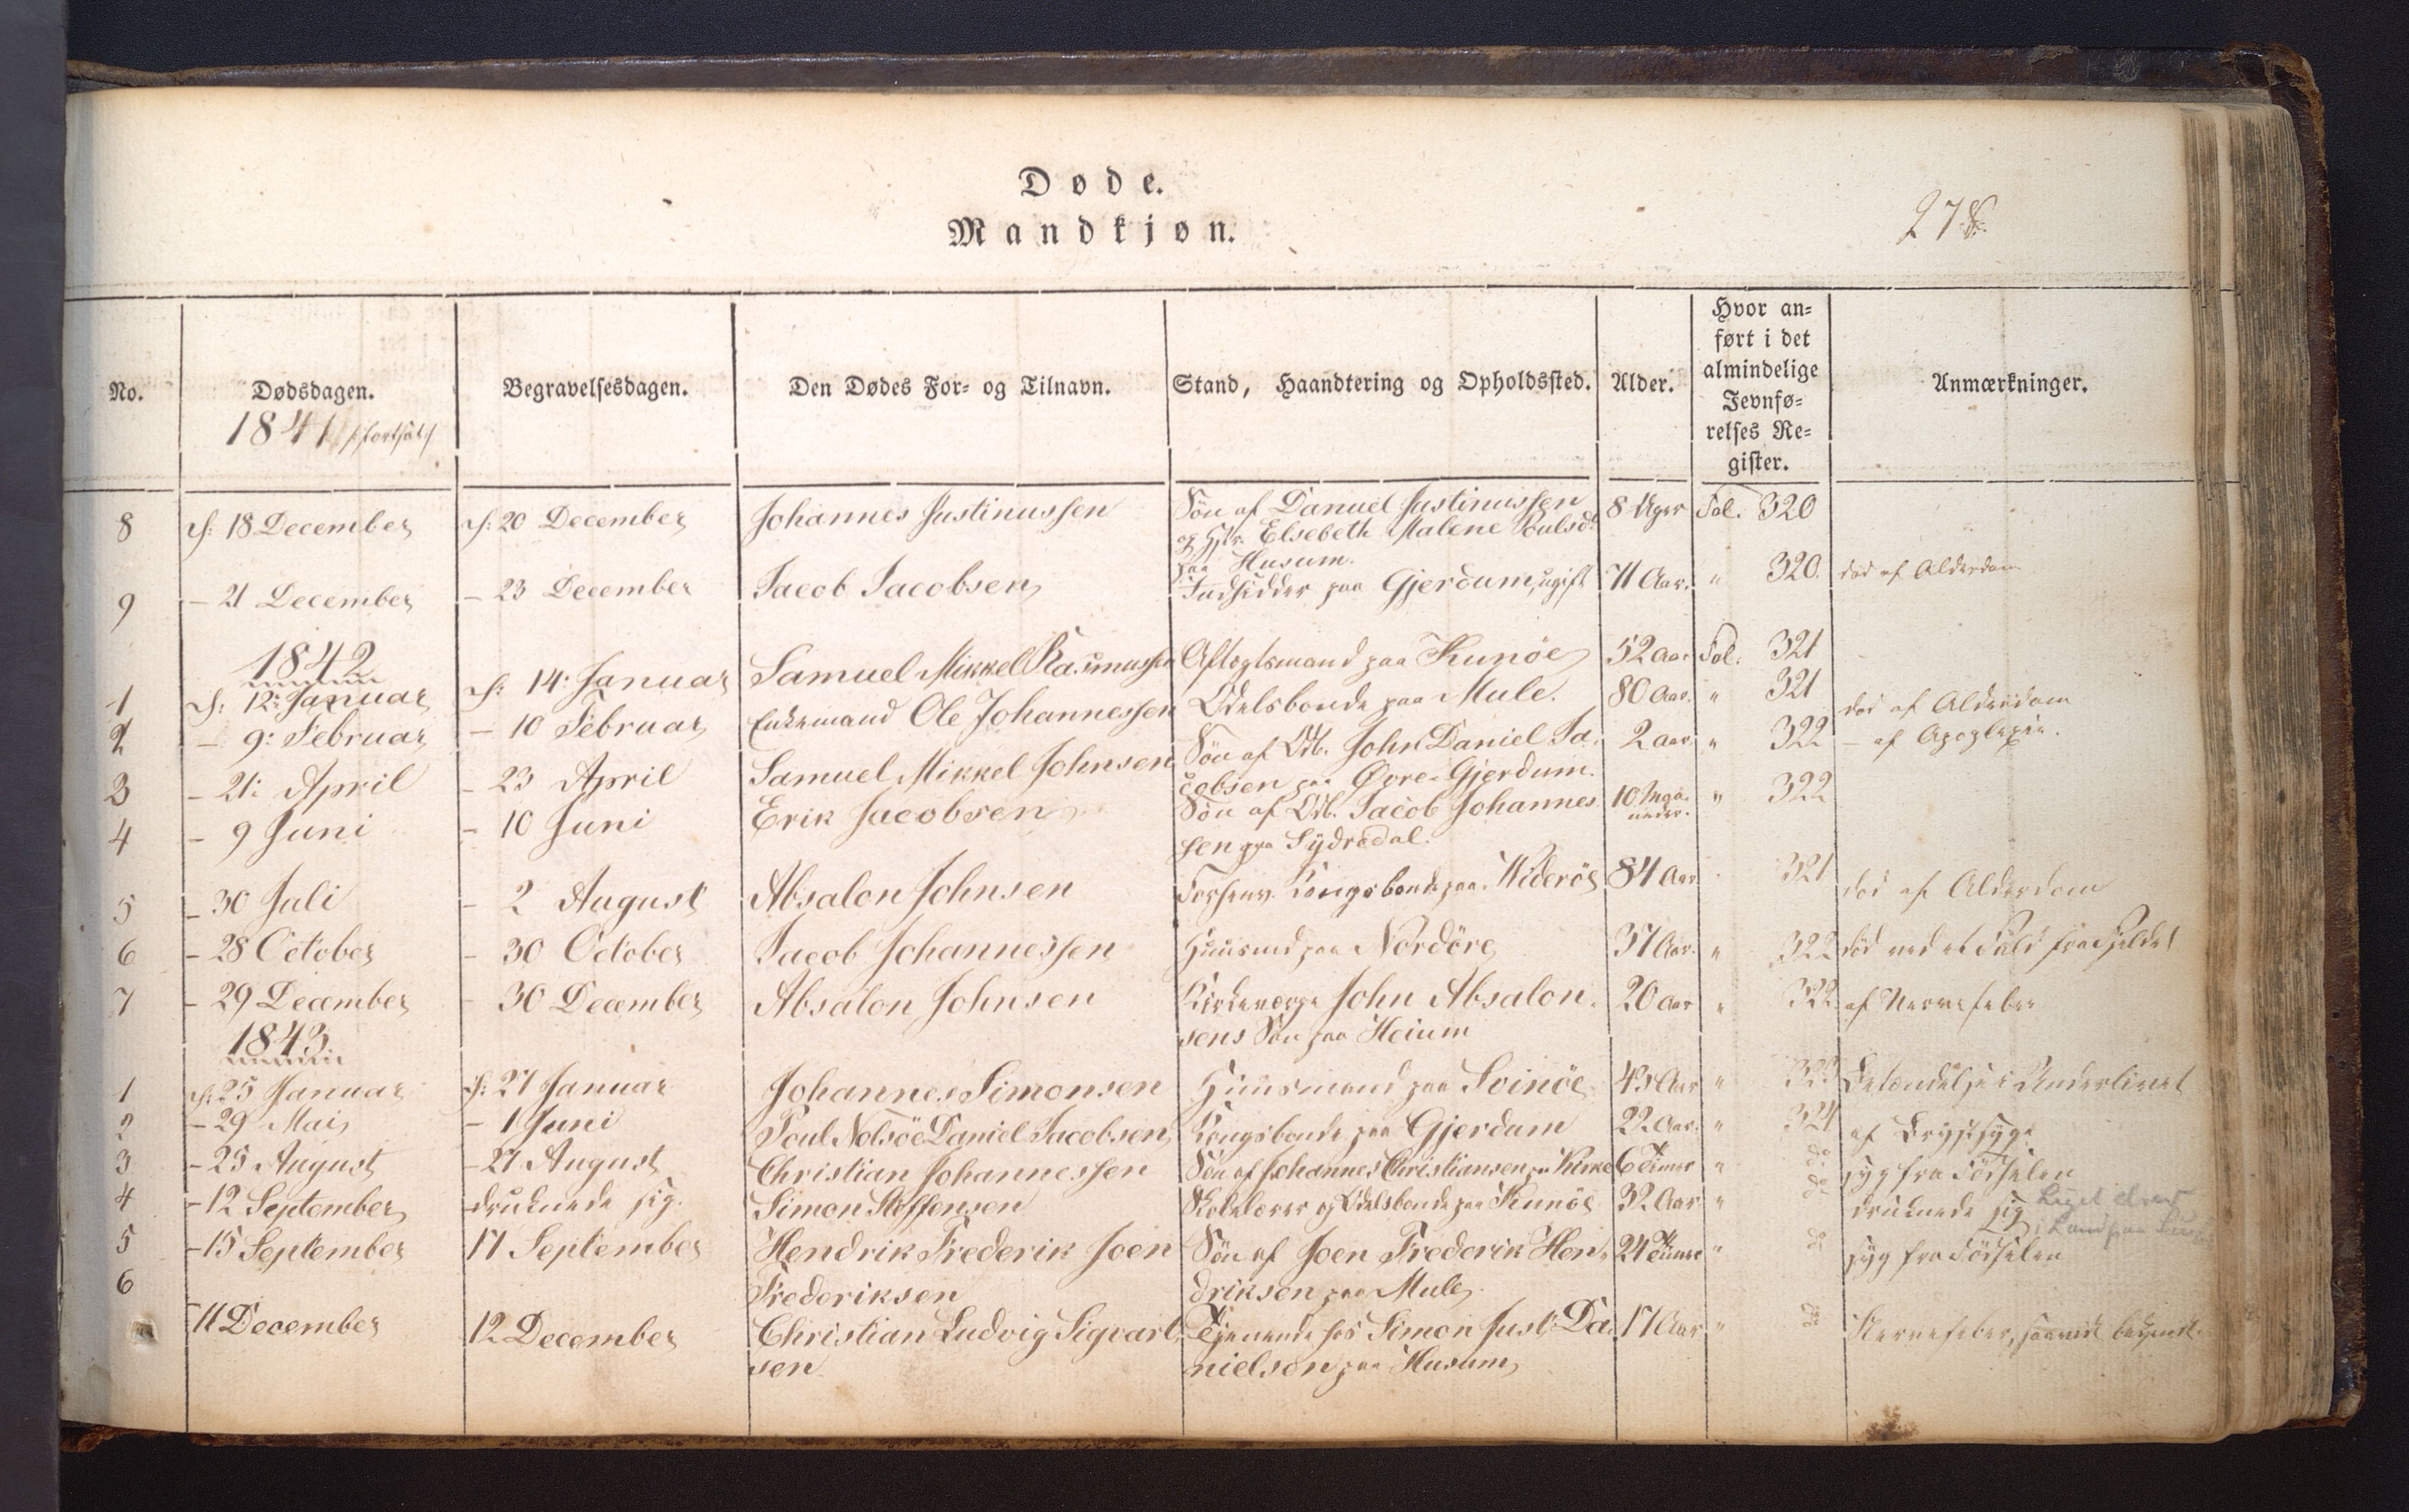 Døde.
Mandkjøn.
278.
No. Dødsdagen. Begravelsesdagen. Den Dødes For- og Tilnavn. Stand, Haandtering og Opholdssted. Alder. Hvor an=
ført i det
almindelige
Jevnfø=
relses Re=
gister. Anmærkninger.
1841 /:fortsat:/
8 d: 18 December d: 20 December Johannes Justinussen Søn af Danuel Justinussen 8 Uger Fol. 320
og Hstr. Elsebeth Malene Poulsd.
paa Husum.
9 – 21 December – 23 December Jacob Jacobsen Indsidder paa Gjerdum, ugift 71 Aar. " 320. død af Alderdom
1842
1 d: 12: Januar d: 14: Januar Samuel Mikkel Rasmussen Aftægtsmand paa Kunöe 52 Aar Fol. 321
2 – 9: Februar – 10 Februar Enkemand Ole Johannessen Odelsbonde paa Mule. 80 Aar. " 321 død af Alderdom
3 – 21: April – 23 April Samuel Mikkel Johnsen Søn af Odb. John Daniel Ja- 2 Aar " 322 – af Apoplexie.
cobsen paa Øvre-Gjerdum.
4 – 9 Juni – 10 Juni Erik Jacobsen Søn af Odb. Jacob Johannes- 10 Maa-
neder. " 322
sen paa Sydradal.
5 – 30 Juli – 2 August Absalon Johnsen Forhenv. Kongsbonde paa Wideröe 84 Aar 321 død af Alderdom
6 – 28 October – 30 October Jacob Johannessen Huusmd paa Nordöre 37 Aar. " 322 død ved et Fald fra Fjeldet
7 – 29 December – 30 December Absalon Johnsen Kirkeværge John Absalon- 20 Aar " 322 af Nervefeber
sens Søn paa Heium
1843
1 d: 25 Januar d: 27 Januar Johannes Simonsen Huusmand paa Svinöe 43 Aar " 323 Betændelse i Underlivet
2 – 29 Mai – 1 Juni Poul Nolsöe Daniel Jacobsen Kongsbonde paa Gjerdum 22 Aar. " 324 af Brystsyge
3 – 25 August – 27 August Christian Johannessen Søn af Johannes Christiansen paa Kirke 6 Timer " do syg fra Fødselen
4 – 12 September druknede sig. Simon Stoffensen Skolelærer og Odelsbonde paa Kunöe 32 Aar " do druknede sig Liget drev
i Land paa
5 – 15 September 17 September Hendrik Frederik Joen Søn af Joen Frederik Hen- 24 Timer " do syg fra Fødselen
Frederiksen driksen paa Mule
6 11 December 12 December Christian Ludvig Sigvart- Tjenende hos Simon Just. Da- 17 Aar " do Nervefeber, saavidt bekjendt.
sen nielsen paa Husum